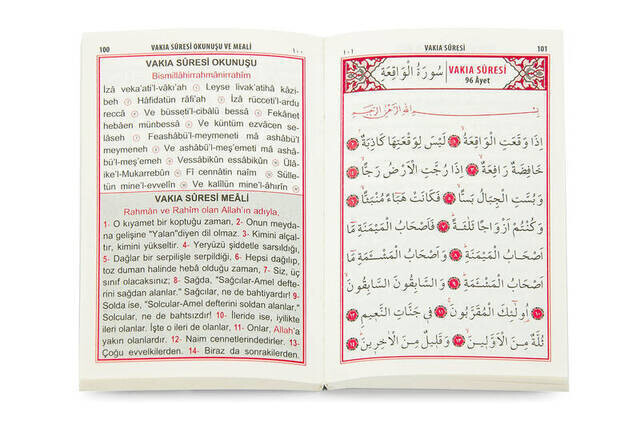 100 VAKIA SÛRESİ OKUNUŞU VE MEALİ ١٠٠
VAKIA SÛRESİ OKUNUŞU
Bismillâhirrahmânirrahîm
İzâ veka'ati'l-vâkı'ah Leyse livak'atihâ kâzi-
beh Hâfidatün râfi'ah İzâ rücceti'l-ardu
reccâ Ve büsseti'l-cibâlü bessâ Fekânet
hebâen münbessâ Ve küntüm ezvâcen se-
lâseh Feashâbü'l-meymeneti mâ ashâbü'l-
meymeneh Ve ashâbü'l-meş'emeti mâ ashâ-
bü'l-meş'emeh Vessâbikûn essâbikûn Ülâ-
ike'l-Mukarrebûn Fî cennâtin naîm Sülle-
tün mine'l-evvelîn Ve kalîlün mine'l-âhırîn
VAKIA SÛRESİ MEÂLİ
Rahmân ve Rahîm olan Allah'ın adıyla,
1- O kıyamet bir koptuğu zaman, 2- Onun meyda-
na gelişine "Yalan"diyen dil olmaz. 3- Kimini alçal-
tır, kimini yükseltir. 4- Yeryüzü şiddetle sarsıldığı,
5- Dağlar bir serpilişle serpildiği, 6- Hepsi dağılıp,
toz duman halinde hebâ olduğu zaman, 7- Siz, üç
sınıf olacaksınız; 8- Sağda, "Sağcılar-Amel defte-
rini sağdan alanlar." Sağcılar, ne de bahtiyardır! 9-
Solda ise, "Solcular-Amel defterini soldan alanlar."
Solcular, ne de bahtsızdır! 10- İleride ise, iyilikte
ileri olanlar. İşte o ileri de olanlar, 11- Onlar, Allah'a
yakın olanlardır. 12- Naim cennetlerindedirler. 13-
Çoğu evvelkilerden. 14- Biraz da sonrakilerden.
١٠١ VAKIA SÛRESİ 101
سُورَةُ الْوَاقِعَةِ VAKIA SÛRESİ
96 Âyet
بِسْمِ اللهِ الرَّحْمٰنِ الرَّحِيمِ
اِذَا وَقَعَتِ الْوَاقِعَةُ ١ لَيْسَ لِوَقْعَتِهَا كَاذِبَةٌ ٢
خَافِضَةٌ رَافِعَةٌ ٣ اِذَا رُجَّتِ الْاَرْضُ رَجًّا ٤
وَبُسَّتِ الْجِبَالُ بَسًّا ٥ فَكَانَتْ هَبَاءً مُنْبَثًّا ٦
وَكُنْتُمْ اَزْوَاجًا ثَلٰثَةً ٧ فَاَصْحَابُ الْمَيْمَنَةِ مَا
اَصْحَابُ الْمَيْمَنَةِ ٨ وَاَصْحَابُ الْمَشْـَٔمَةِ مَا
اَصْحَابُ الْمَشْـَٔمَةِ ٩ وَالسَّابِقُونَ السَّابِقُونَ
١٠ اُولٰئِكَ الْمُقَرَّبُونَ ١١ فِي جَنَّاتِ النَّعِيمِ ١٢
ثُلَّةٌ مِنَ الْاَوَّلِينَ ١٣ وَقَلِيلٌ مِنَ الْاٰخِرِينَ ١٤